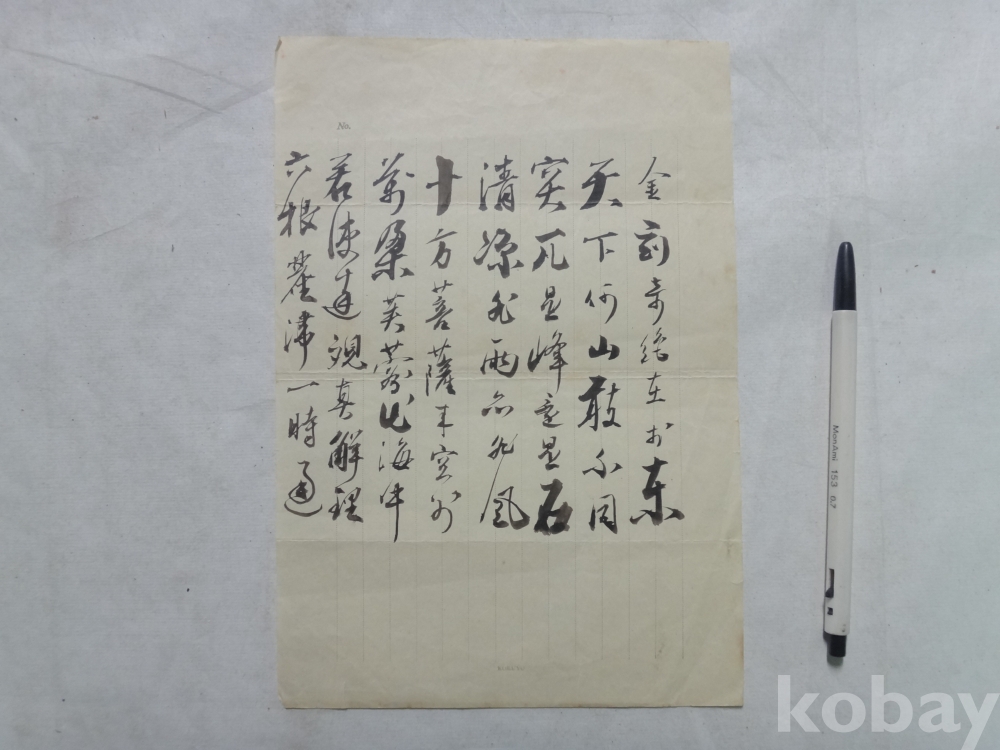 No.
金剛奇絶在於東
天下何山敢不同
突兀是峰還是石
清凉非雨亦非風
十方菩薩來空外
萬朶芙蓉出海中
若使達觀真解理
六根塵滯一時通
MonAmi 153 0.7
kobay